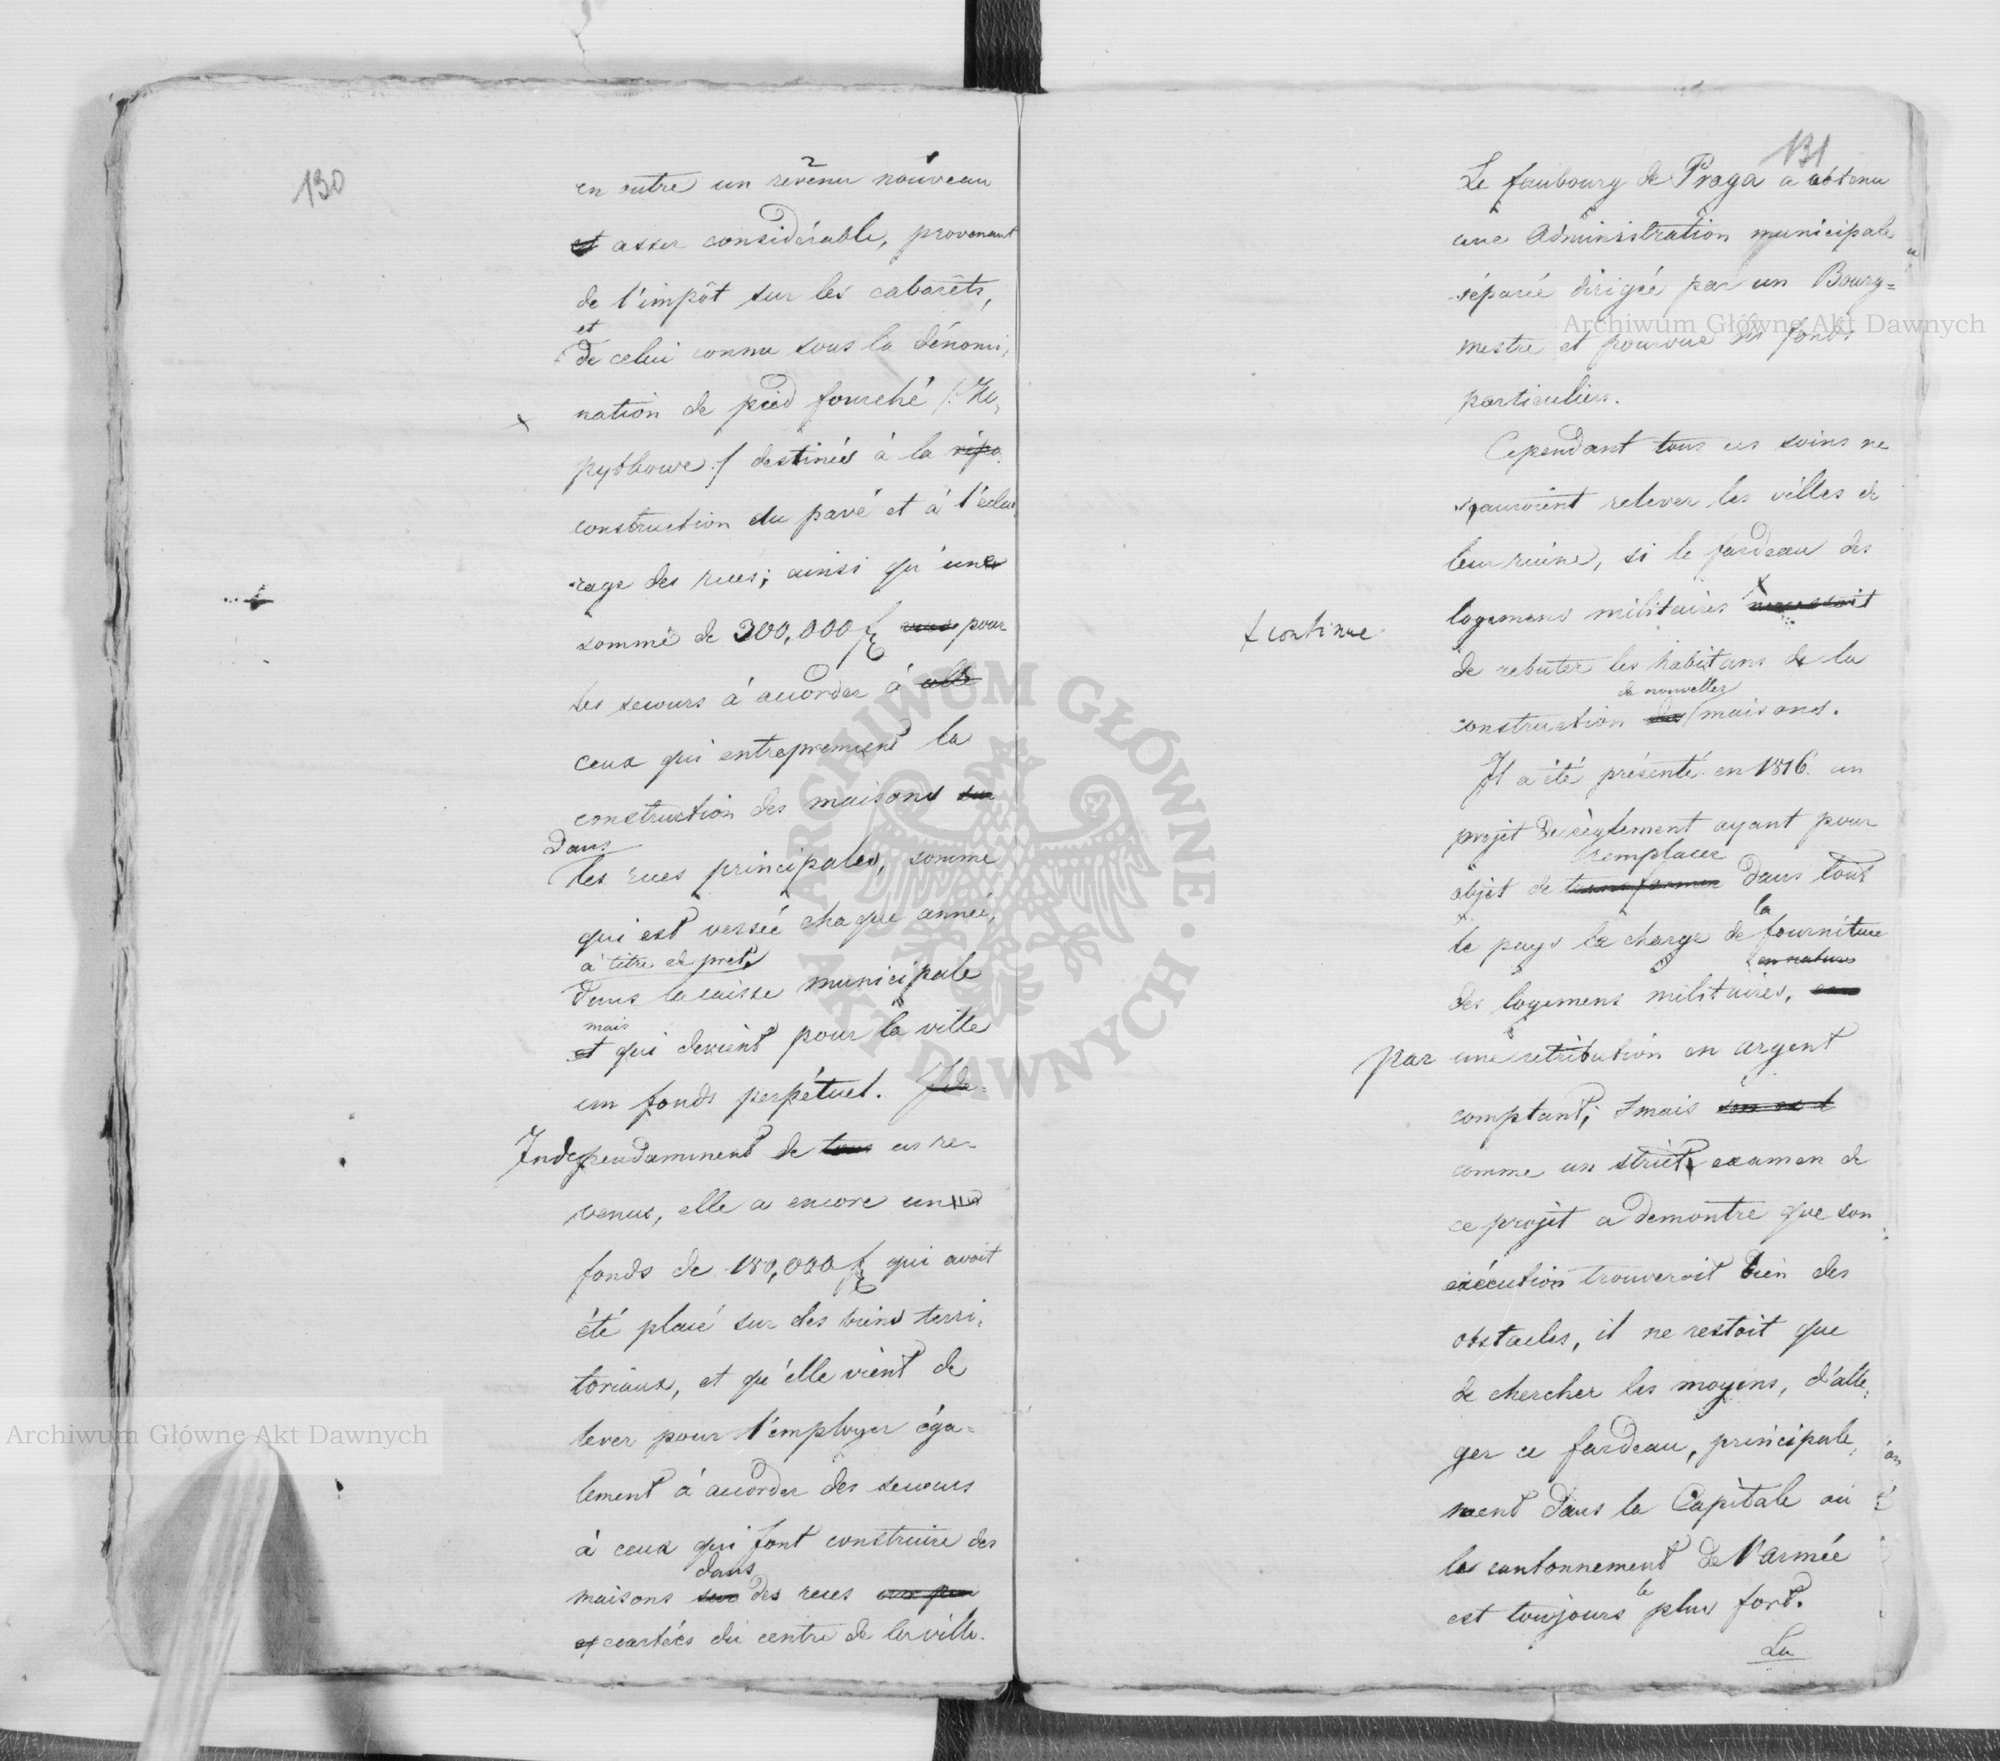 130
en outre un révenu nouveau
et assez considérable, provenant
de l'impôt sur les cabarêts,
et
de celui connu sous la dénomi,
nation de pied fourché /: Ko,
pytkowe :/ destinés à la répa
construction du pavé et à l'éclai,
rage des rues; ainsi qu'une
somme de 300,000 f pour
les secours à accorder à celle
ceux qui entreprennent la
construction des maisons sur
dans
les rues principales, somme
qui est versée chaque année,
à titre de pret,
dans la caisse municipale
mais
et qui devient pour la ville
un fonds perpétuel. Inde=
Independamment de tous ces re-
venus, elle a encore un
fonds de 180,000 f qui avoit
été placé sur des biens terri,
toriaux, et qu'elle vient de
lever pour l'employer éga=
lement à accorder des secours
à ceux qui font construire des
dans
maisons sur des rues un peu
ecartées du centre de la ville.
131
Le faubourg de Praga a obtenu
une Administration municipale
séparée dirigée par un Bourg=
mestre et pourvue des fonds
particuliers.
Cependant tous ces soins ne
sçauroient relever les villes de
leur ruine, si le fardeau des
logemens militaires
x continue
de rebuter les habitans de la
de nouvelles
construction des maisons.
Il a été présenté en 1816 un
projet de règlement ayant pour
remplacer
objet de transformer dans tout
la
le pays la charge de fourniture
en nature
des logemens militaires,
par une retribution en argent
comptant; mais
comme un strict examen de
ce projet a demontré que son
exécution trouveroit bien des
obstacles, il ne restoit que
de chercher les moyens, d'allé,
ger ce fardeau, principale,
ment dans la Capitale où
le cantonnement de l'armée
le
est toujours plus fort.
La
Archiwum Główne Akt Dawnych
Archiwum Główne Akt Dawnych
ARCHIWUM GŁÓWNE · AKT DAWNYCH ·